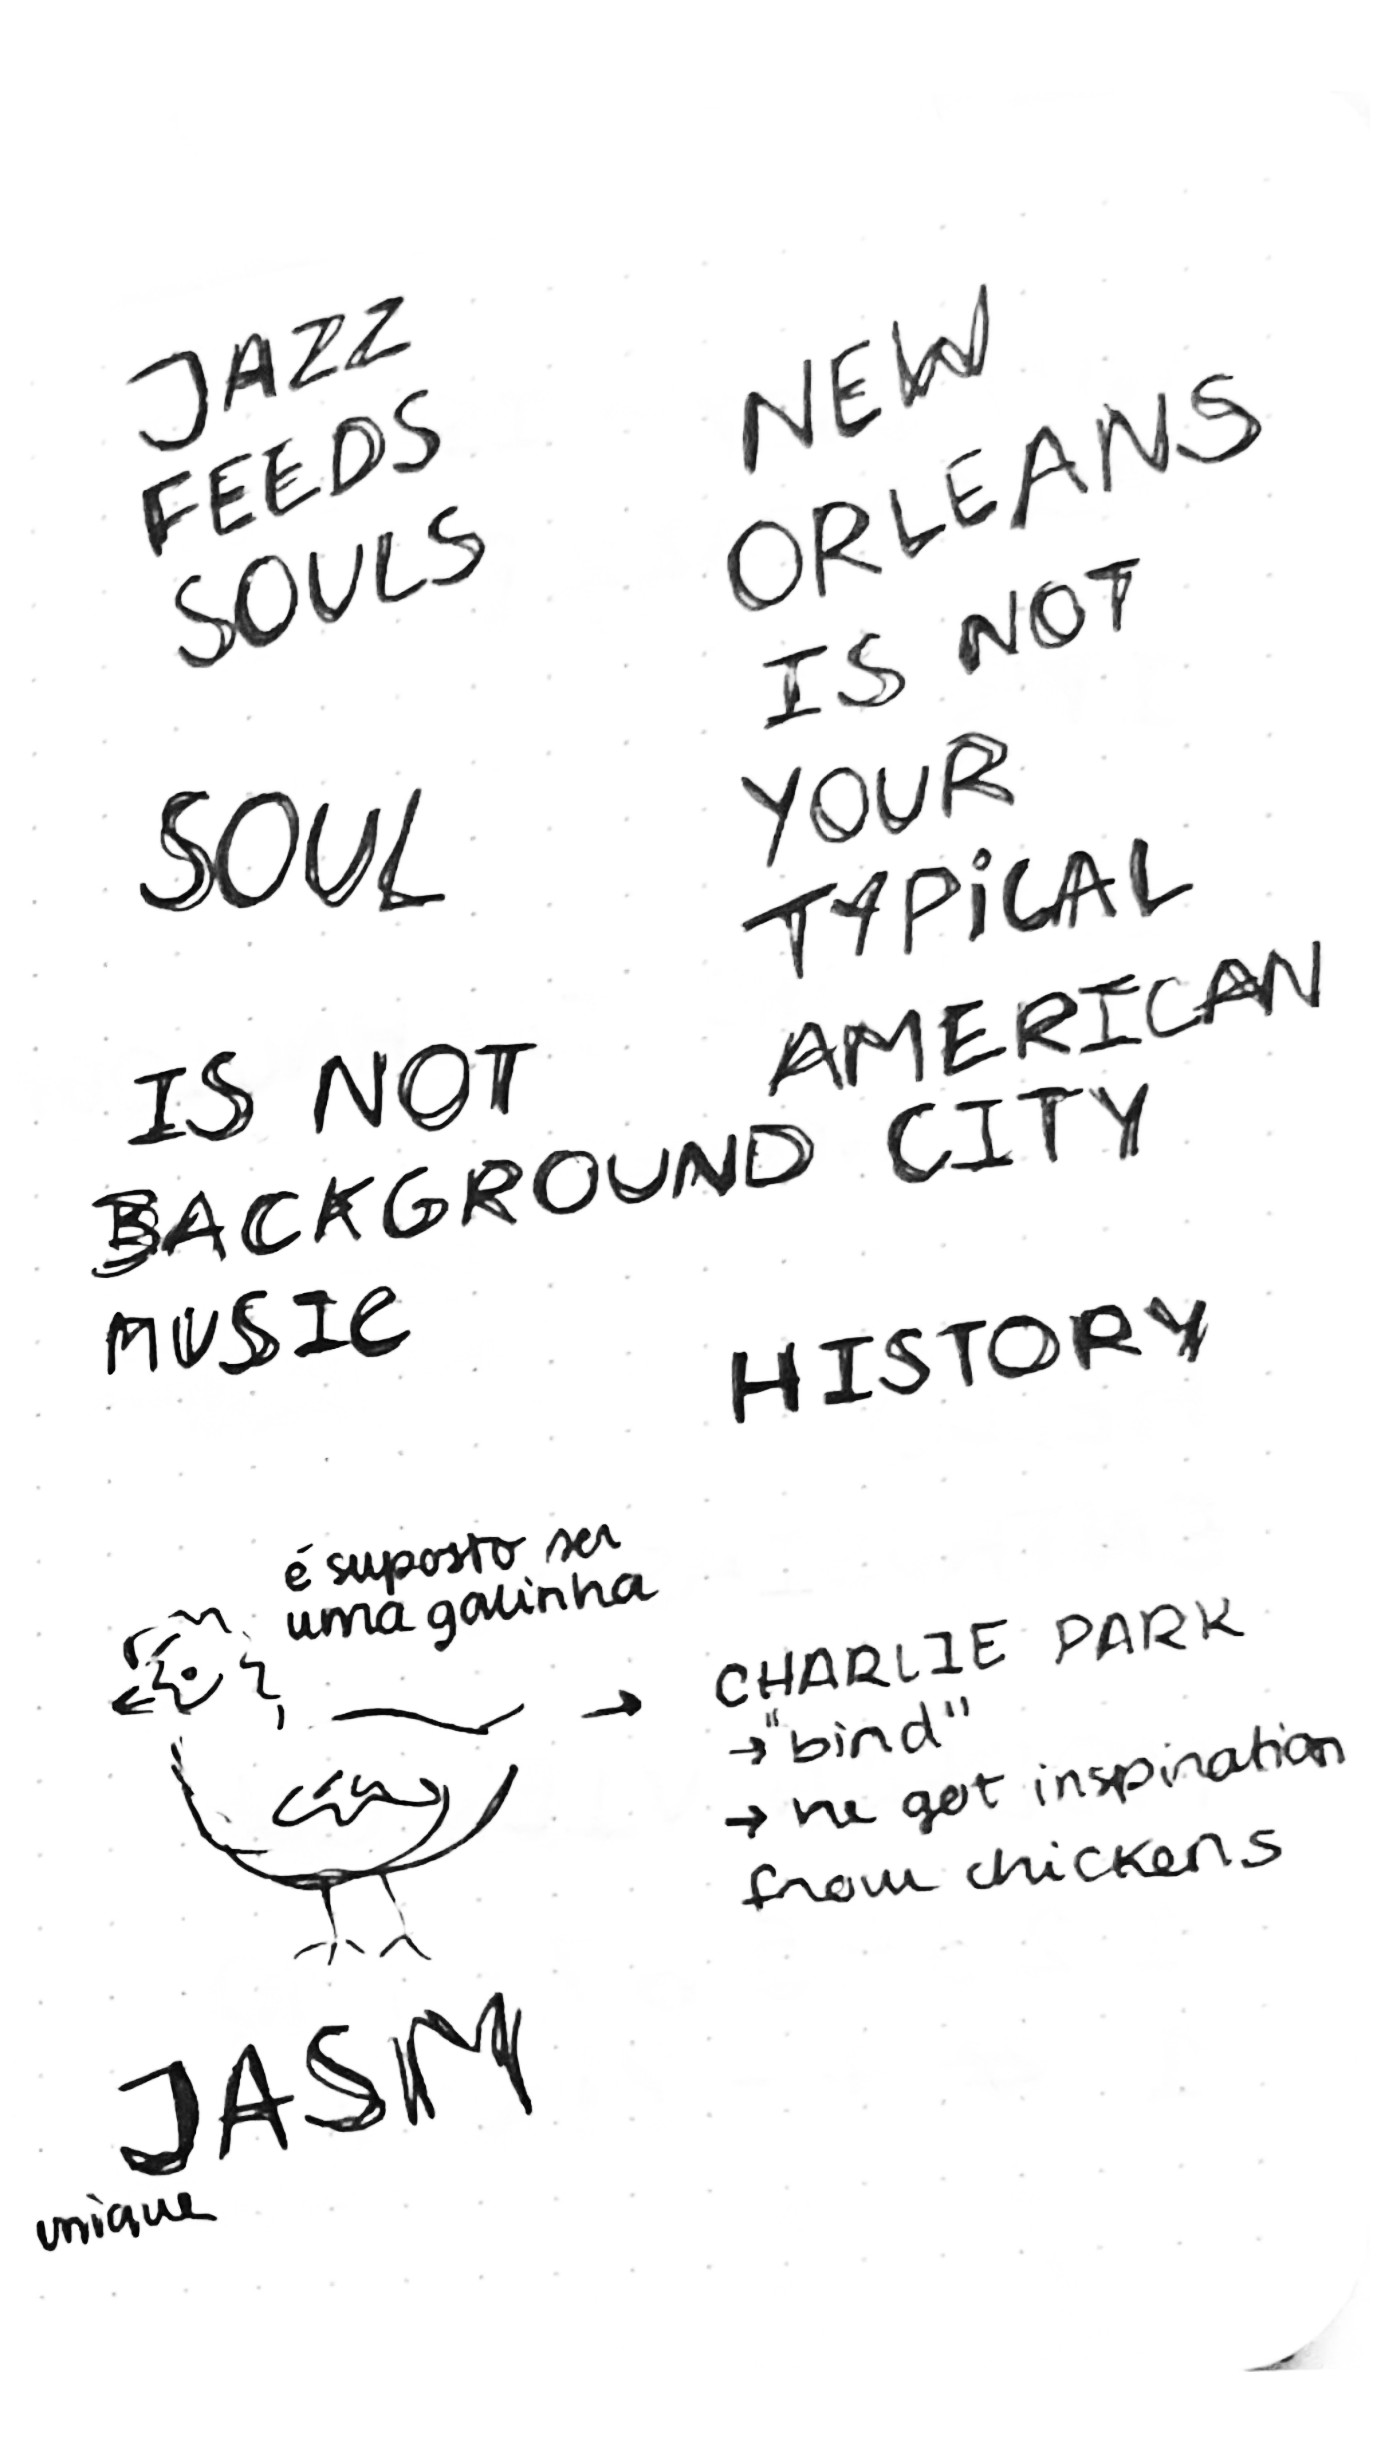 JAZZ
FEEDS
SOULS
SOUL
IS NOT
BACKGROUND
MUSIC
NEW
ORLEANS
IS NOT
YOUR
TYPICAL
AMERICAN
CITY
HISTORY
é suposto ser
uma galinha
CHARLIE PARK
→"bird"
→ he got inspiration
from chickens
JASM
unique